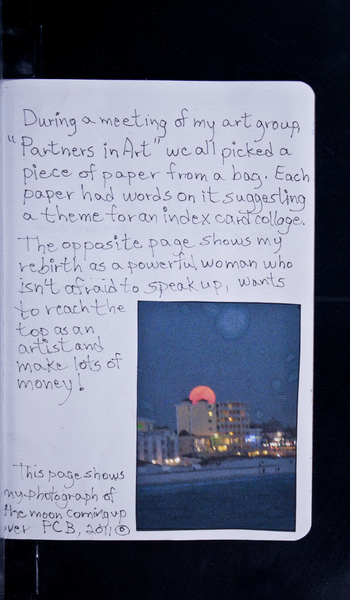 During a meeting of my art group,
"Partners in Art" we all picked a
piece of paper from a bag. Each
paper had words on it suggesting
a theme for an index card collage.
The opposite page shows my
rebirth as a powerful woman who
isn't afraid to speak up, wants
to reach the
top as an
artist and
make lots of
money!
This page shows
my photograph of
the moon coming up
over PCB, 2011